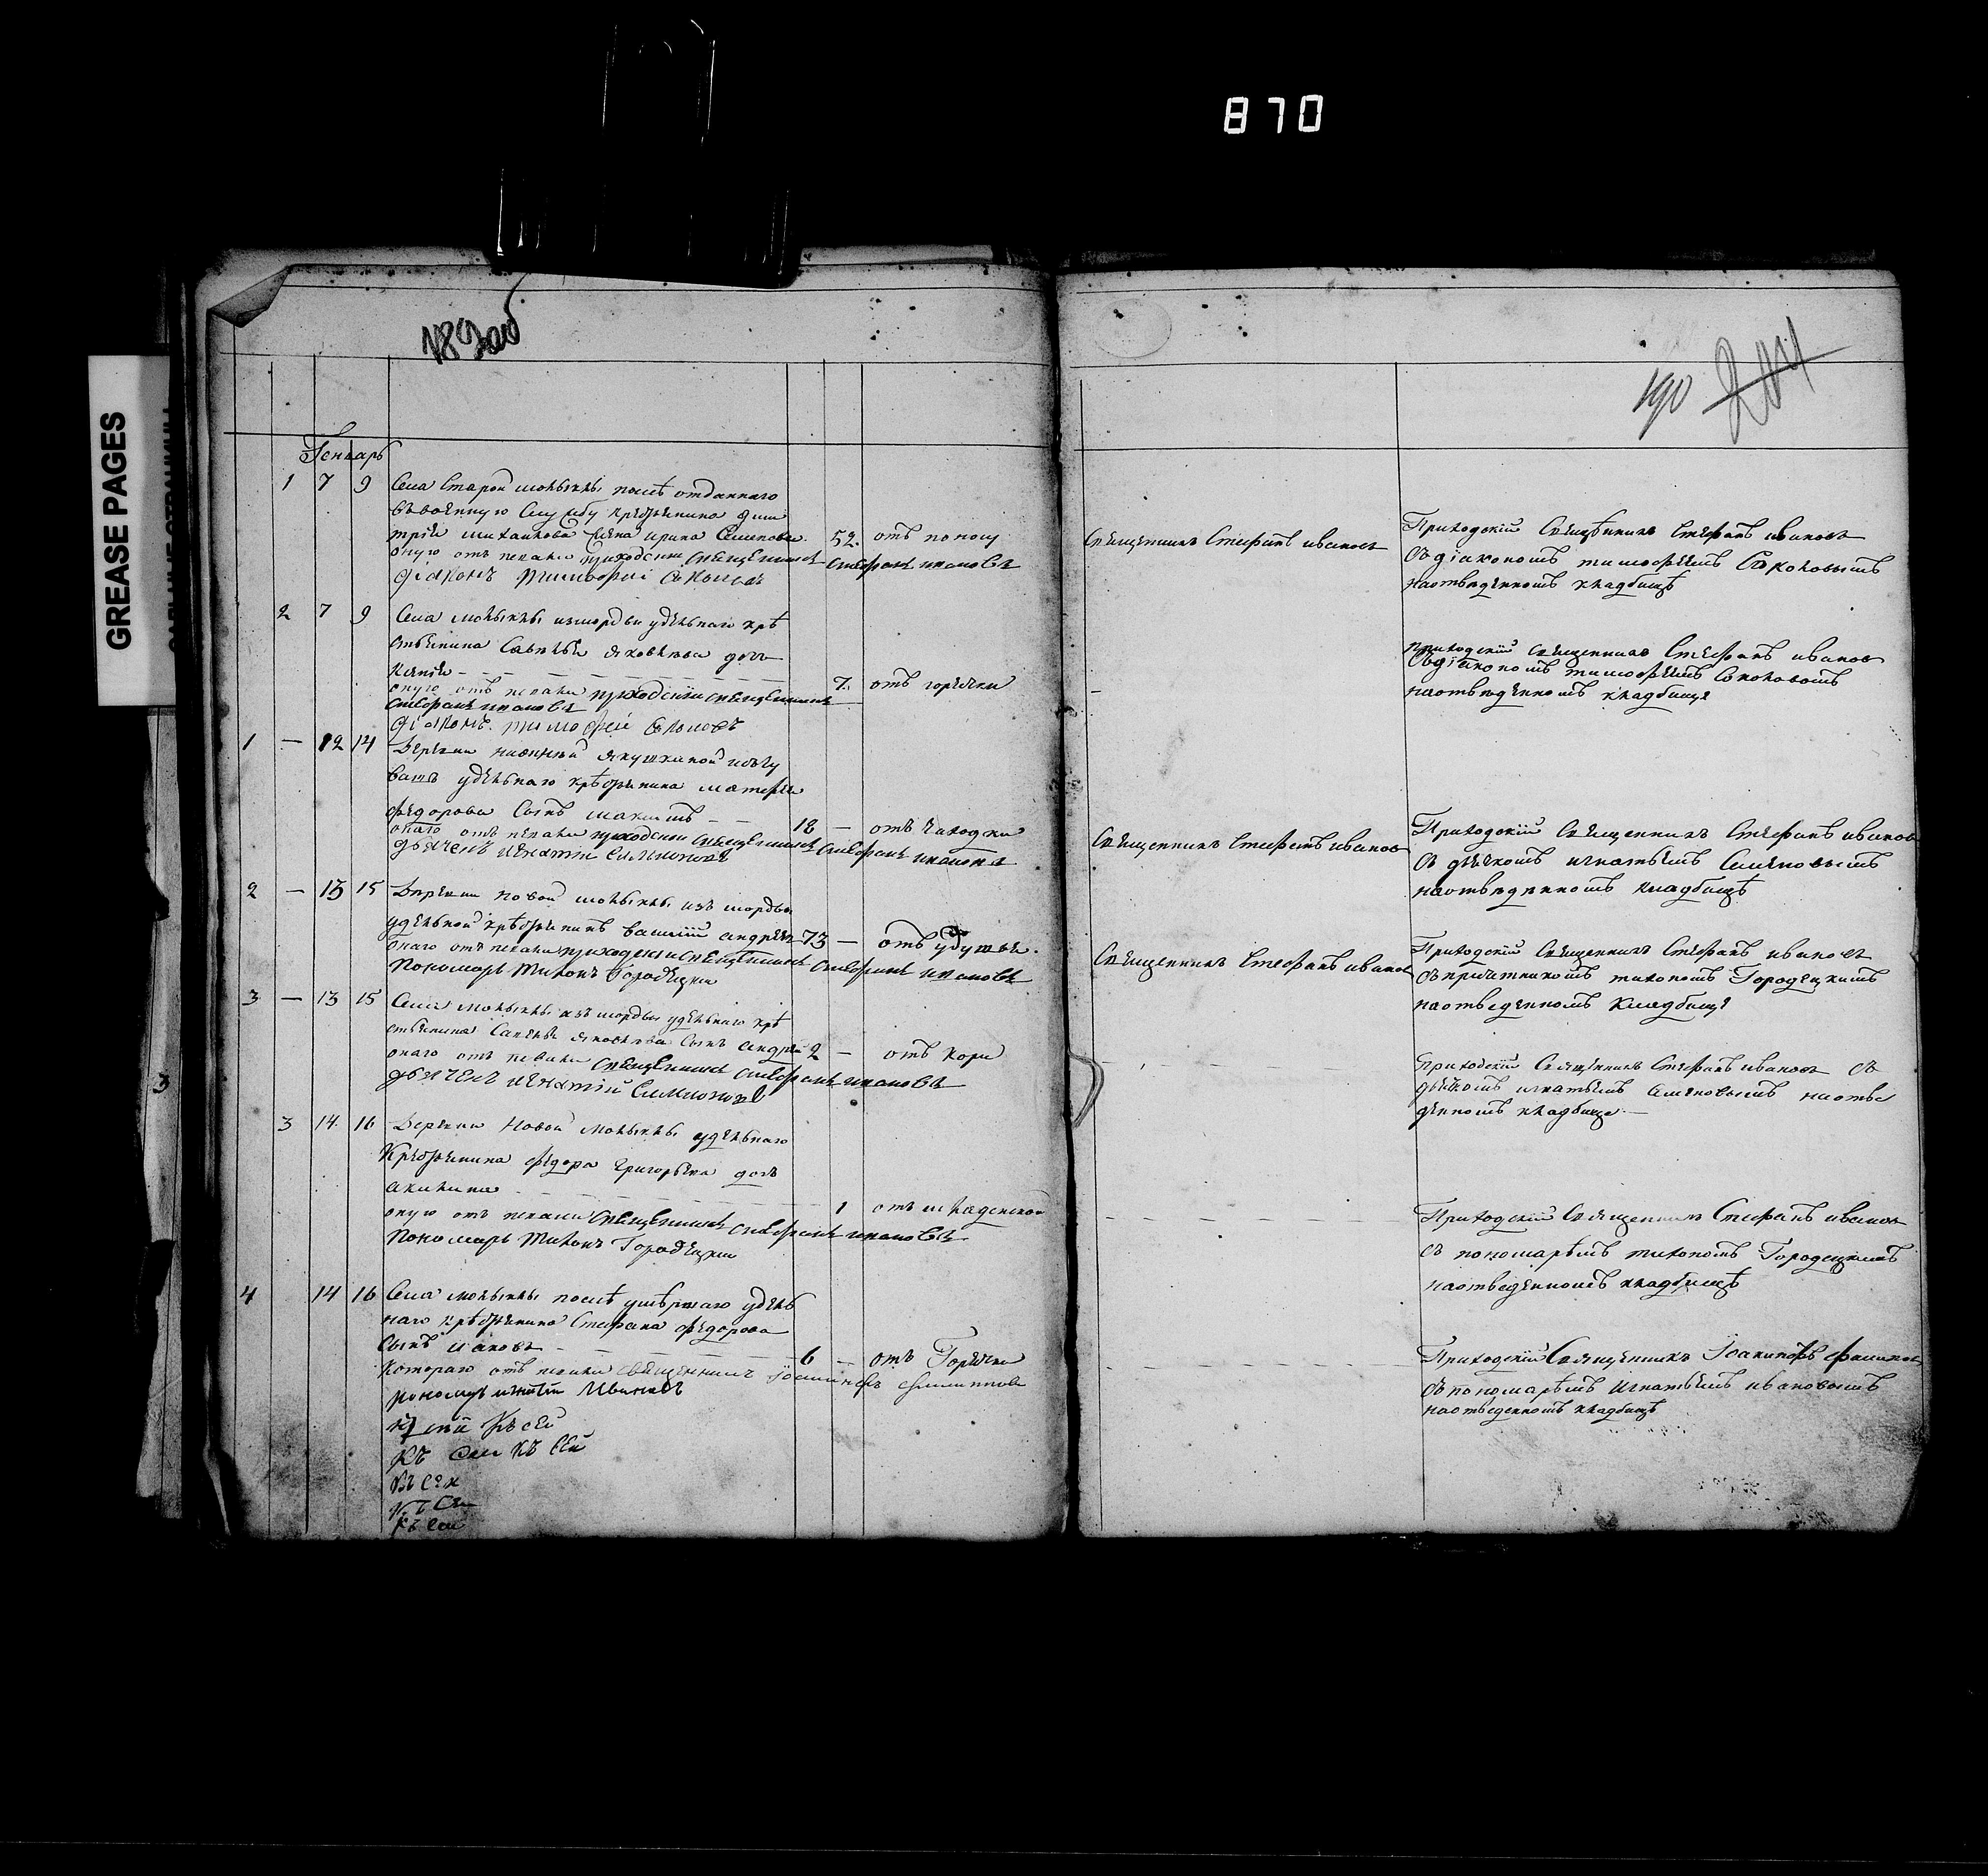 870
GREASE PAGES
189 200
190 204
Генварь
1 7 9 Села Старой мокыкы послѣ отданнаго
въ военную службу крестьянина Дми
трія михайлова жена ирина Семенова 52. отъ поносу
оную отпевали приходскій священникъ Стефанъ ивановъ
діаконъ тимофей Соколовъ
Священникъ Стефанъ ивановъ
Приходскій Священникъ Стефанъ ивановъ
съ діакономъ тимофеемъ Соколовымъ
на отведенномъ кладбищѣ
2 7 9 Села из мордвы удельнаго крѣ
стьянина яковлева дочь
7. отъ горячки
оную отпевали приходскій священникъ
Стефанъ ивановъ
діаконъ тимофей Соколовъ
приходскій священникъ Стефанъ ивановъ
съ діакономъ тимофеемъ Соколовымъ
на отведенномъ кладбище
1 — 12 14 Деревни нижней якушкиной изъ чу
вашъ удельнаго крѣстьянина матфея
федорова Сынъ максимъ — — 18 — отъ чахотки
онаго отпевали приходскій священникъ Стефанъ ивановъ
дьячекъ игнатій Симионовъ
Священникъ Стефанъ ивановъ
Приходскій Священникъ Стефанъ ивановъ
съ дьячкомъ игнатьемъ Семеновымъ
на отведенномъ кладбищѣ
2 — 13 15 Деревни новой изъ мордвы
удельной крѣстьянинъ василій андреевъ 73 — отъ удушья.
онаго отпевали приходскій священникъ Стефанъ ивановъ
Пономарь тихонъ Городецкій
Священникъ Стефанъ ивановъ
Приходскій Священникъ Стефанъ ивановъ
съ причетникомъ тихономъ Городецкимъ
на отведенномъ кладбище
3 — 13 15 Села изъ мордвы удельнаго крѣ
стьянина яковлева Сынъ андрей 2 — отъ кори
онаго отпевали священникъ Стефанъ ивановъ
дьячекъ игнатій Симионовъ
Приходскій Священникъ Стефанъ ивановъ съ
дьячкомъ игнатьемъ Семеновымъ на отве
денномъ кладбище —
3 14. 16 Деревни новой удельнаго
крестьянина федора григорьева дочь
акилина
1 отъ младенской
оную отпевали священникъ Стефанъ ивановъ
Пономарь тихонъ Городецкій
Приходскій Священникъ Стефанъ ивановъ
съ пономаремъ тихономъ Городецкимъ
на отведенномъ кладбищѣ
4 14 16 Села послѣ умѣршаго удель
наго крѣстьянина Стефана федорова
Сынъ иаковъ — 6 — отъ Горячки
котораго отпевали священникъ Іоакинфъ филиповъ
пономарь игнатій Ивановъ
Приходскій Священникъ Іоакинфъ филиповъ
съ пономаремъ игнатьемъ ивановымъ
на отведенномъ кладбищѣ
Къ сей
Къ сей Къ сей
Къ сей
Къ сей
Къ сей